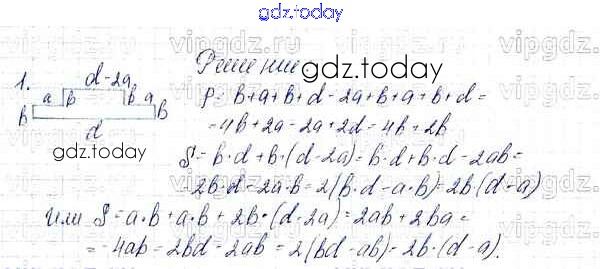 gdz.today
Решение
gdz.today
1.
d-2a
a b b a
b b
d
gdz.today
P= b+a+b+d-2a+b+a+b+d=
=4b+2a-2a+2d=4b+2b
S=b·d+b·(d-2a)=b·d+b·d-2ab=
2b·d-2a·b=2(b·d-a·b)=2b·(d-a)
Или S=a·b+a·b+2b·(d-2a)=2ab+2ba=
=-4ab=2bd-2ab=2(bd-ab)=2b·(d-a).